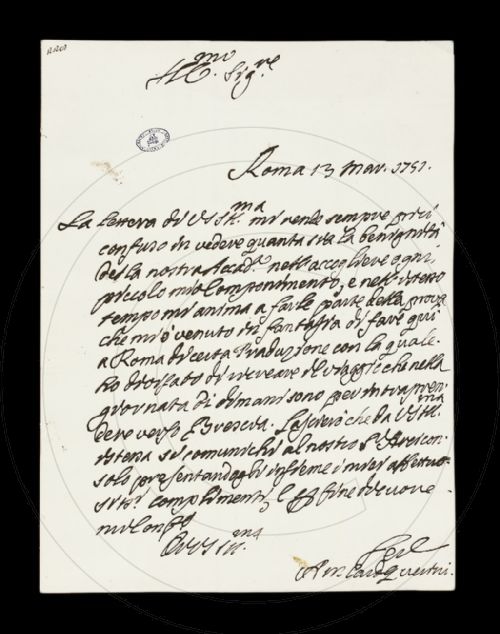 Ill.mo Sig.re
Roma 13 Mar. 1751.
La lettera di VSIll.ma mi rende sempre più
confuso in vedere quanta sia la benignità
della nostra Accad.a nell'accogliere ogni
piccolo mio Componimento, e nell'istesso
tempo mi anima a farle parte della
che mi è venuto in fantasia di fare qui
a Roma di certa Traduzione con la quale
ho di ricreare il viaggio che nella
giornata di dimani sono per intrapren-
dere verso Brescia. Lascierò che da VSIll.ma
istessa si comunichi al nostro
solo presentandogli insieme i miei affettuo-
si complimenti, e
mi
Di VSIll.ma
Card. Querini.